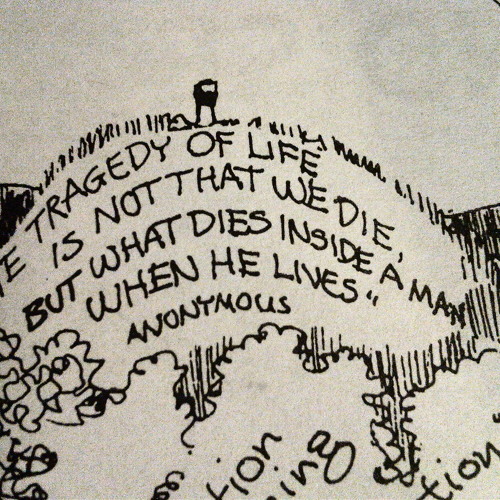 TRAGEDY OF LIFE
IS NOT THAT WE DIE,
BUT WHAT DIES INSIDE A MAN
WHEN HE LIVES"
ANONYMOUS